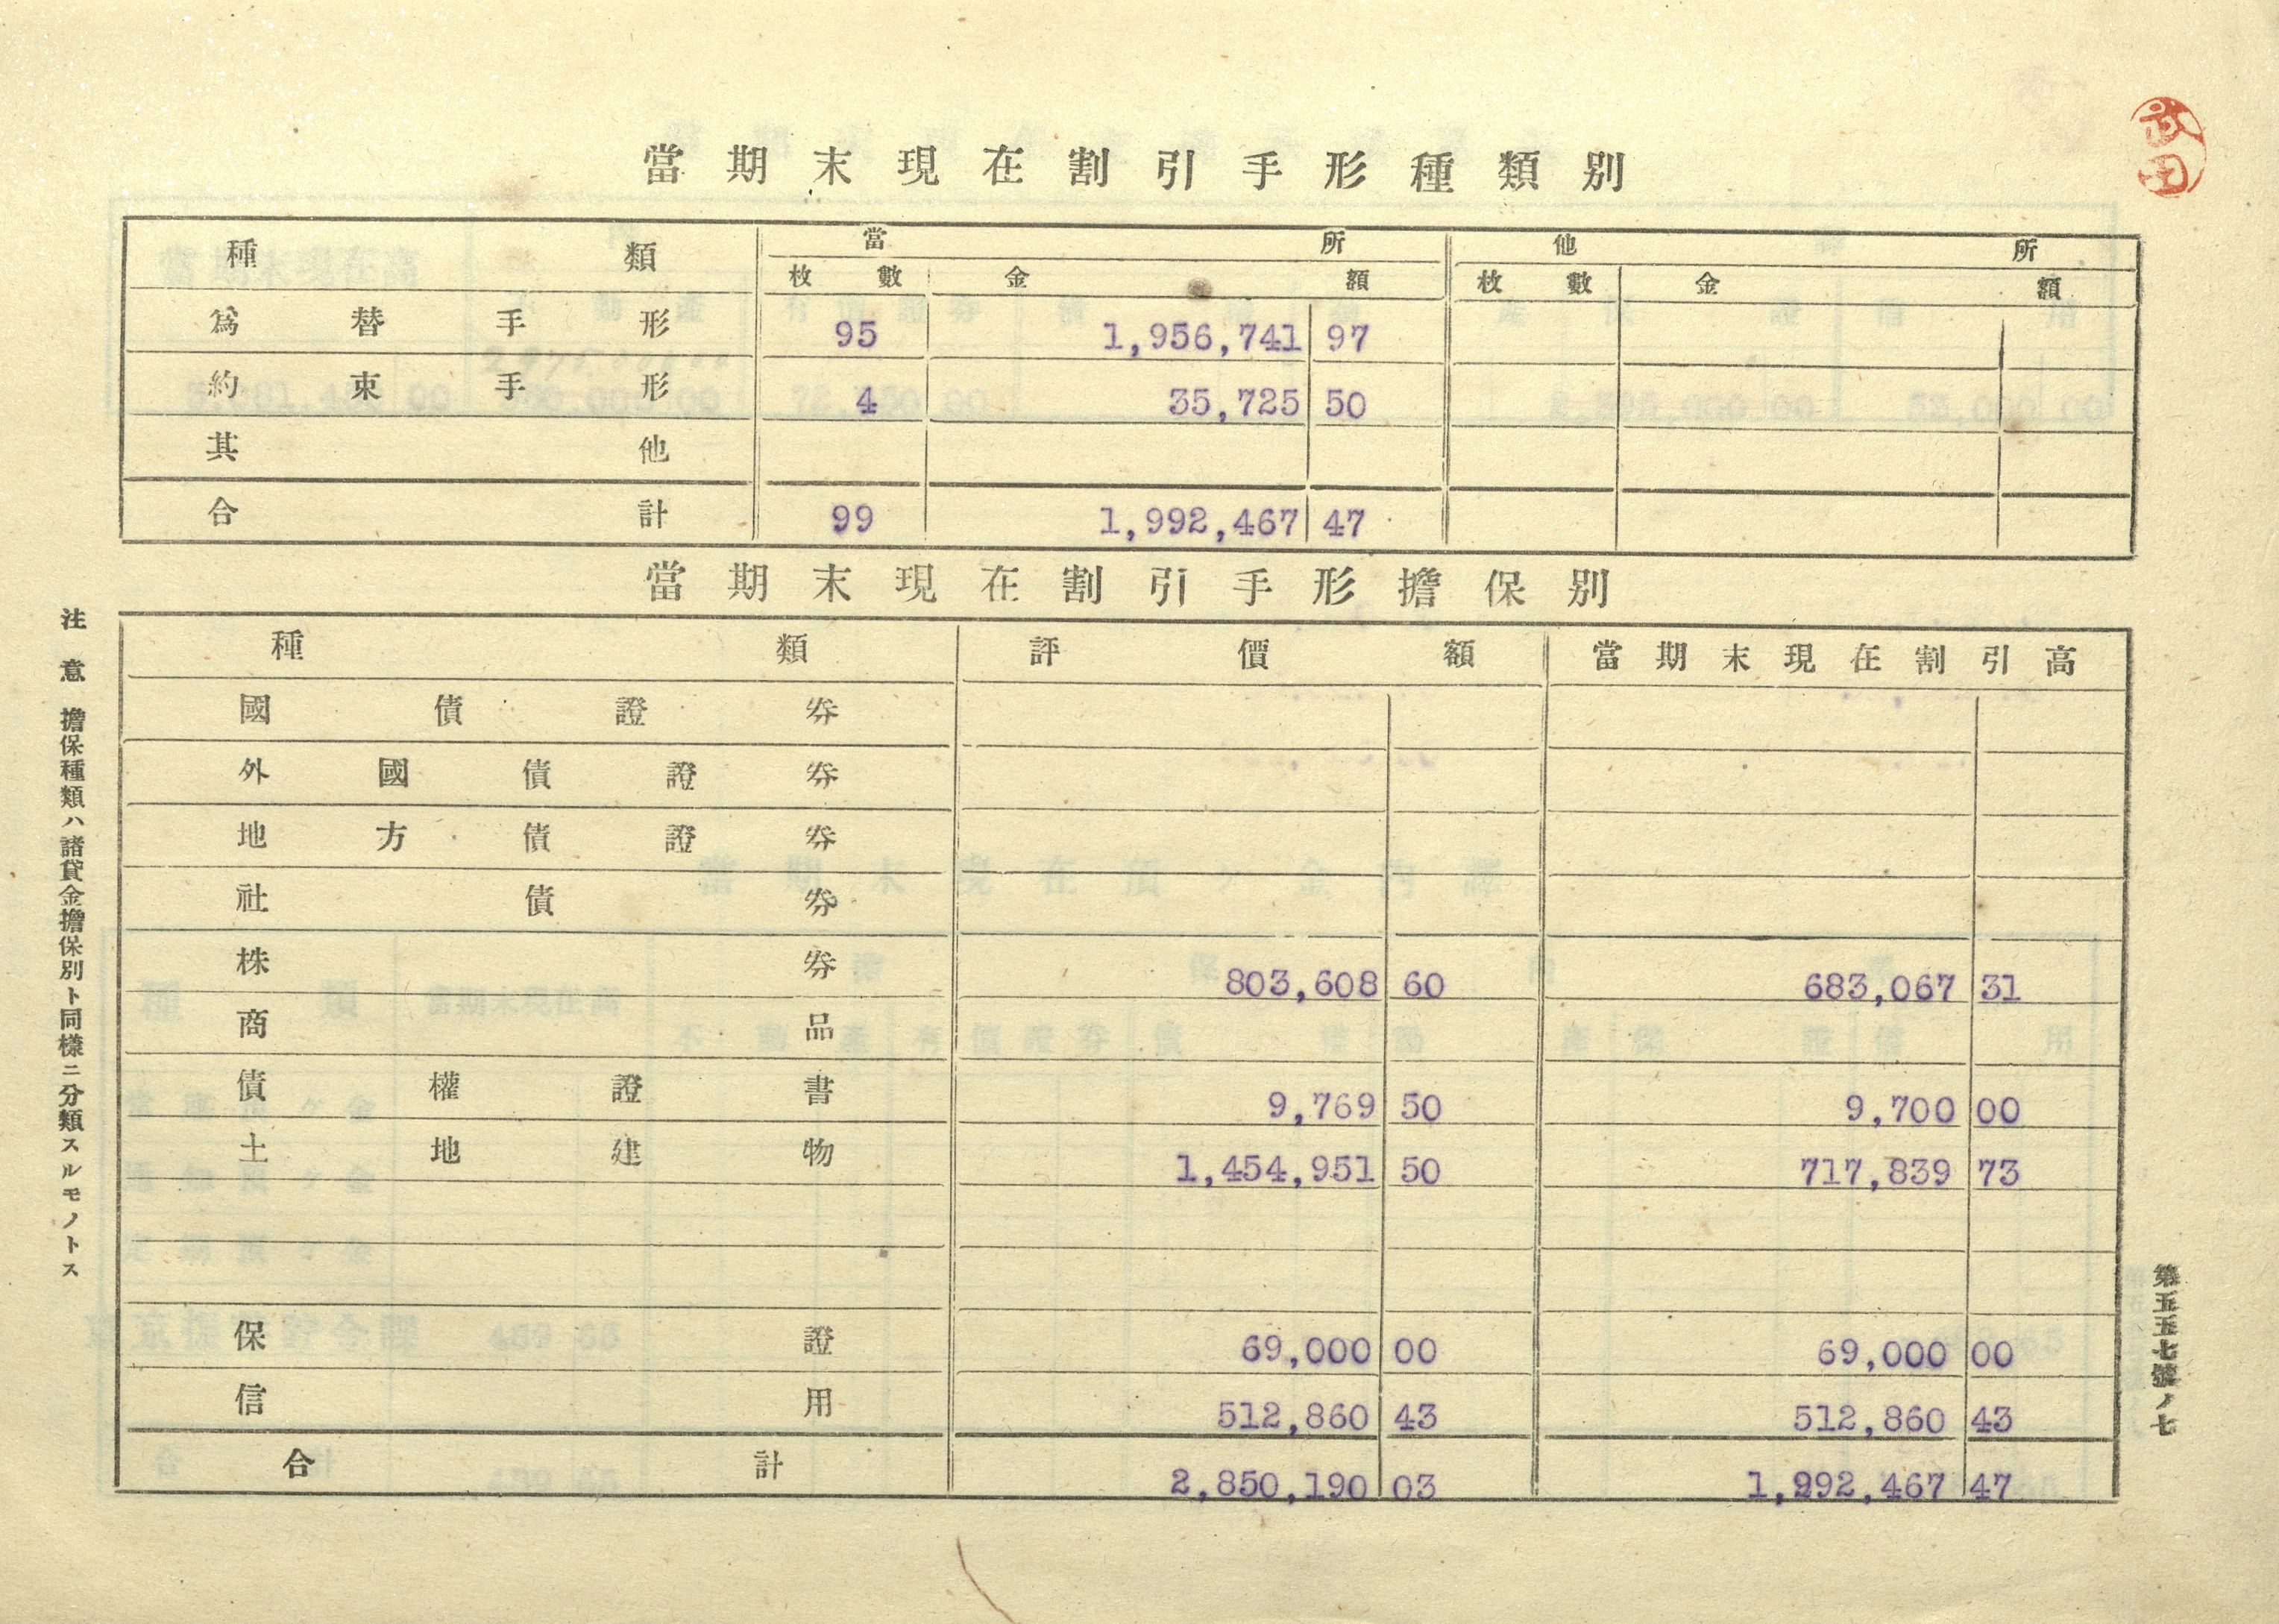 武田
當期末現在割引手形種類別
種類 當所 他所
枚數 金額 枚數 金額
爲替手形 95 1,956,741 97
約束手形 4 35,725 50
其他
合計 99 1,992,467 47
當期末現在割引手形擔保別
種類 評價額 當期末現在割引高
國債證券
外國債證券
地方債證券
社債券
株券 803,608 60 683,067 31
商品
債權證書 9,769 50 9,700 00
土地建物 1,454,951 50 717,839 73
保證 69,000 00 69,000 00
信用 512,860 43 512,860 43
合計 2,850,190 03 1,992,467 47
注意 擔保種類ハ諸貸金擔保別ト同樣ニ分類スルモノトス
第五五七號ノ七